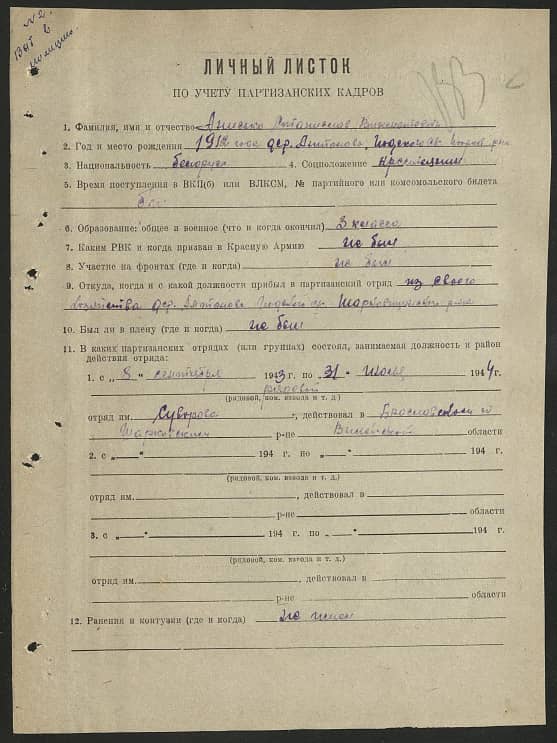 № 2
ЛИЧНЫЙ ЛИСТОК
ПО УЧЕТУ ПАРТИЗАНСКИХ КАДРОВ
1. Фамилия, имя и отчество
2. Год и место рождения 1912 года дер.
3. Национальность белорус 4. Соцположение крестьянин
5. Время поступления в ВКП(б) или ВЛКСМ, № партийного или комсомольского билета
6. Образование: общее и военное (что и когда окончил) 3 класса
7. Каким РВК и когда призван в Красную Армию не был
8. Участие на фронтах (где и когда) не был
9. Откуда, когда и с какой должности прибыл в партизанский отряд из своего
хозяйства дер. района
10. Был ли в плену (где и когда) не был
11. В каких партизанских отрядах (или группах) состоял, занимаемая должность и район
действия отряда:
1. с „8“ сентября 1943 г. по „31“ июля 1944 г.
рядовой
(рядовой, ком. взвода и т. д.)
отряд им. Суворова, действовал в
р-не Вилейской области
2. с „ “ 194 г. по „ “ 194 г.
(рядовой, ком. взвода и т. д.)
отряд им. , действовал в
р-не области
3. с „ “ 194 г. по „ “ 194 г.
(рядовой, ком. взвода и т. д.)
отряд им. , действовал в
р-не области
12. Ранения и контузии (где и когда) не имел